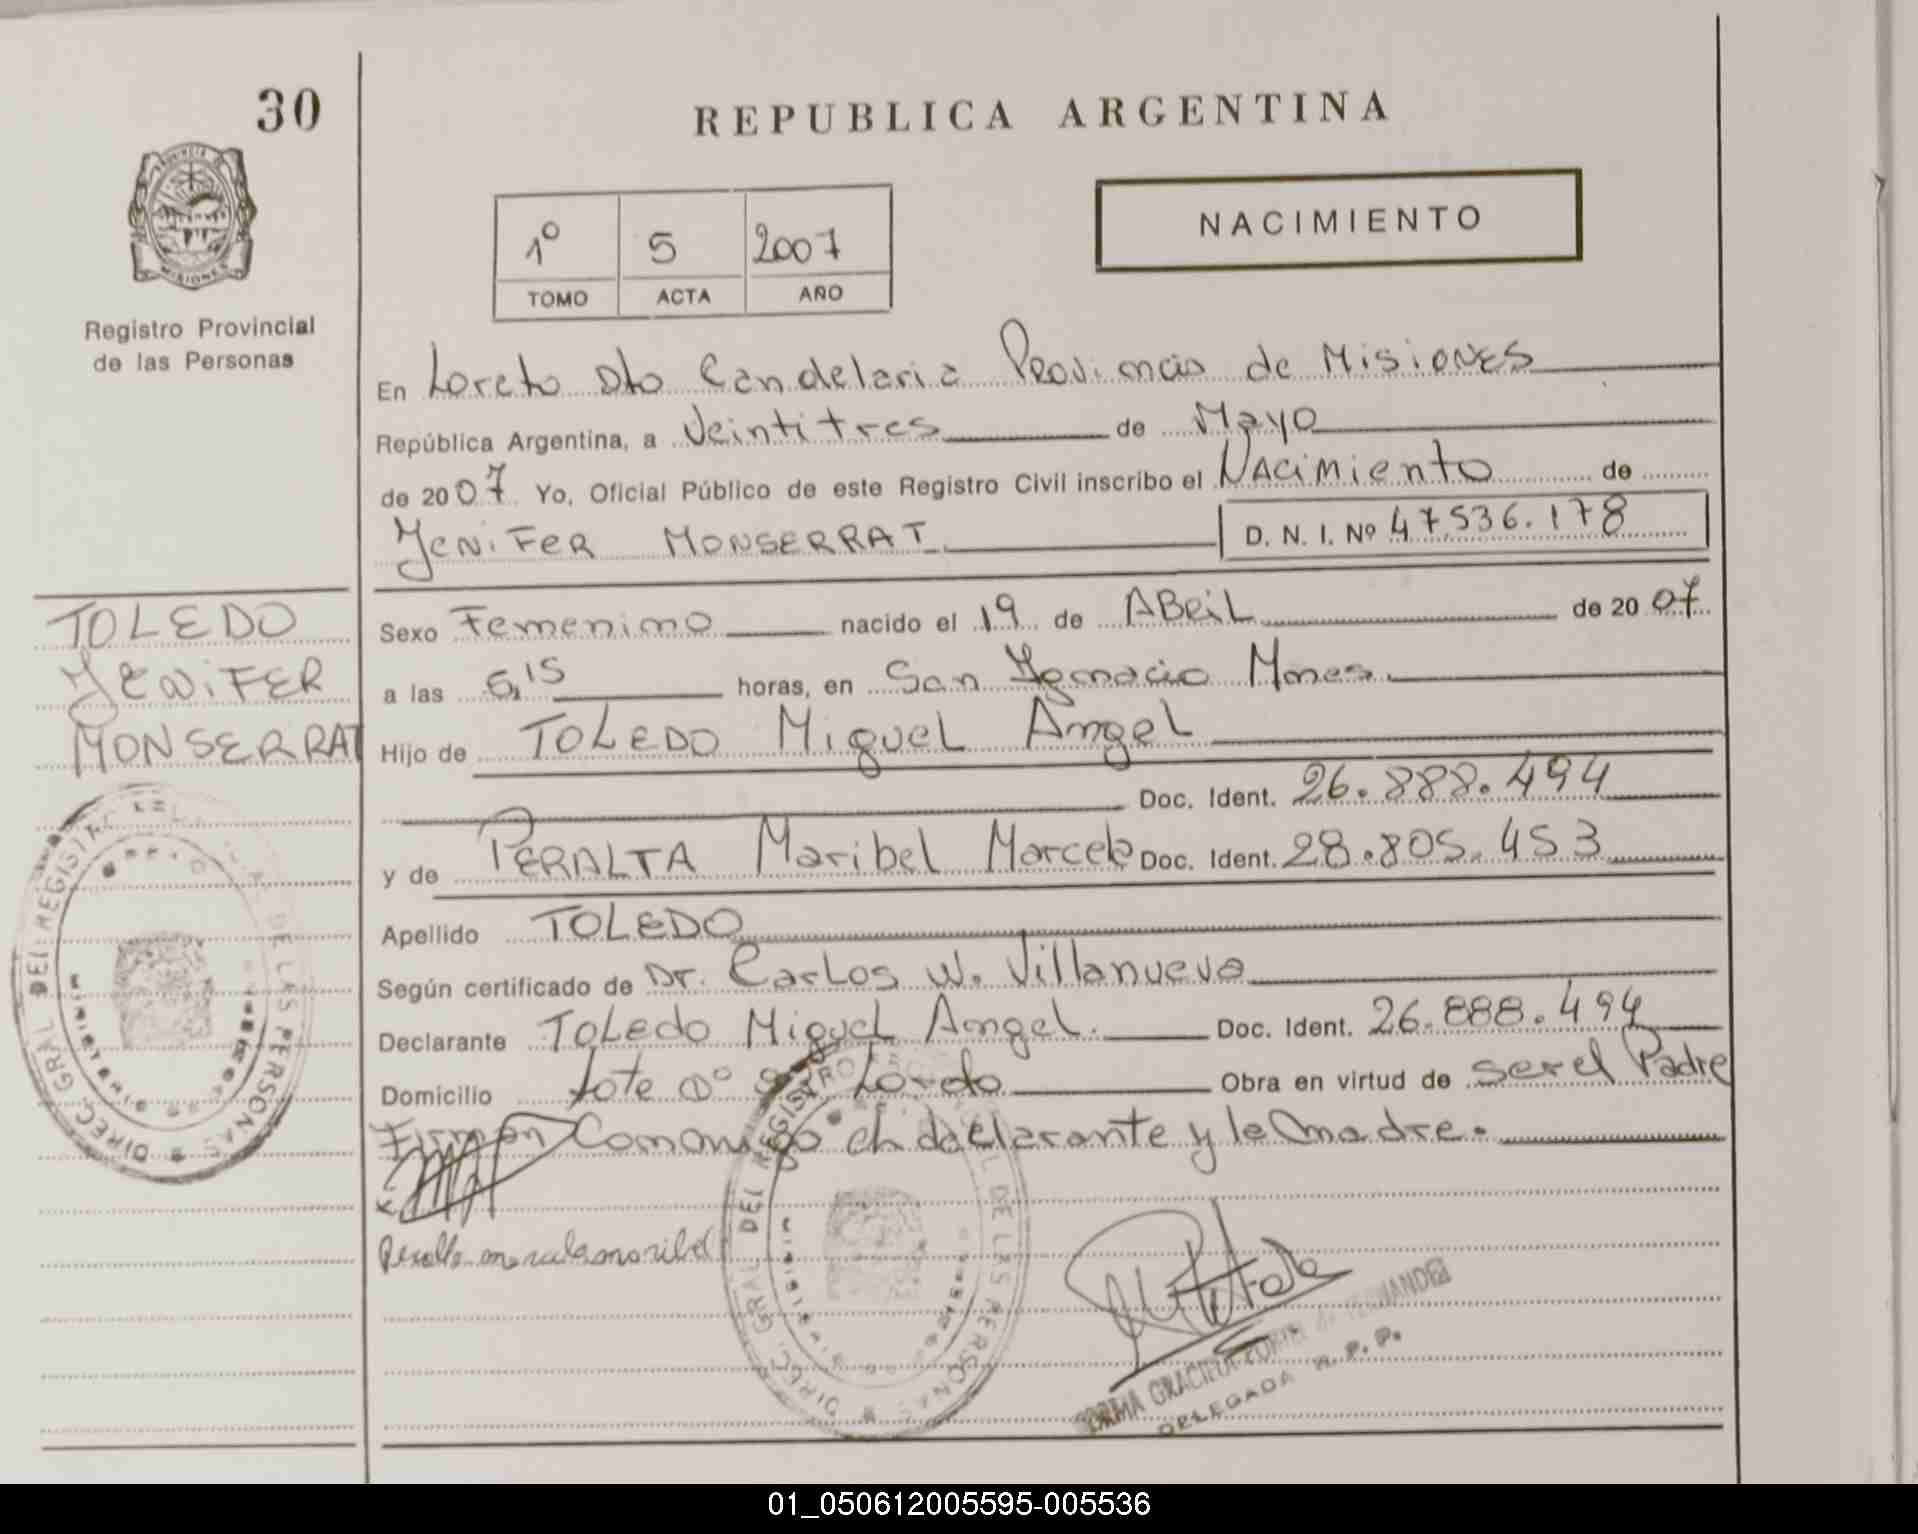 30
REPUBLICA ARGENTINA
NACIMIENTO
1º 5 2007
TOMO ACTA AÑO
MISIONES
Registro Provincial
de las Personas
En Loreto Dto Candelaria Provincia de Misiones
República Argentina, a Veintitres de Mayo
de 2007 Yo, Oficial Público de este Registro Civil inscribo el Nacimiento de
Jenifer Monserrat D. N. I. Nº 47536.178
TOLEDO
JENiFER
MONSERRAT
Sexo Femenino nacido el 19 de ABRiL de 2007
a las 6,15 horas, en San Ignacio Mnes.
Hijo de TOLEDO Miguel Angel
Doc. Ident. 26.888.494
y de PERALTA Maribel Marcela Doc. Ident. 28.805.453
Apellido TOLEDO
Según certificado de Dr. Carlos W. Villanueva
Declarante Toledo Miguel Angel. Doc. Ident. 26.888.494
Domicilio Lote Nº Loreto Obra en virtud de ser el Padre
Firman Conmigo el declarante y la madre.
DIREC. GRAL. DEL REGISTRO DE LAS PERSONAS
DIREC. GRAL. DEL REGISTRO DE LAS PERSONAS
Peralta marcela maribel
NORMA GRACIELA FERNANDEZ
DELEGADA R. P. P.
01_050612005595-005536